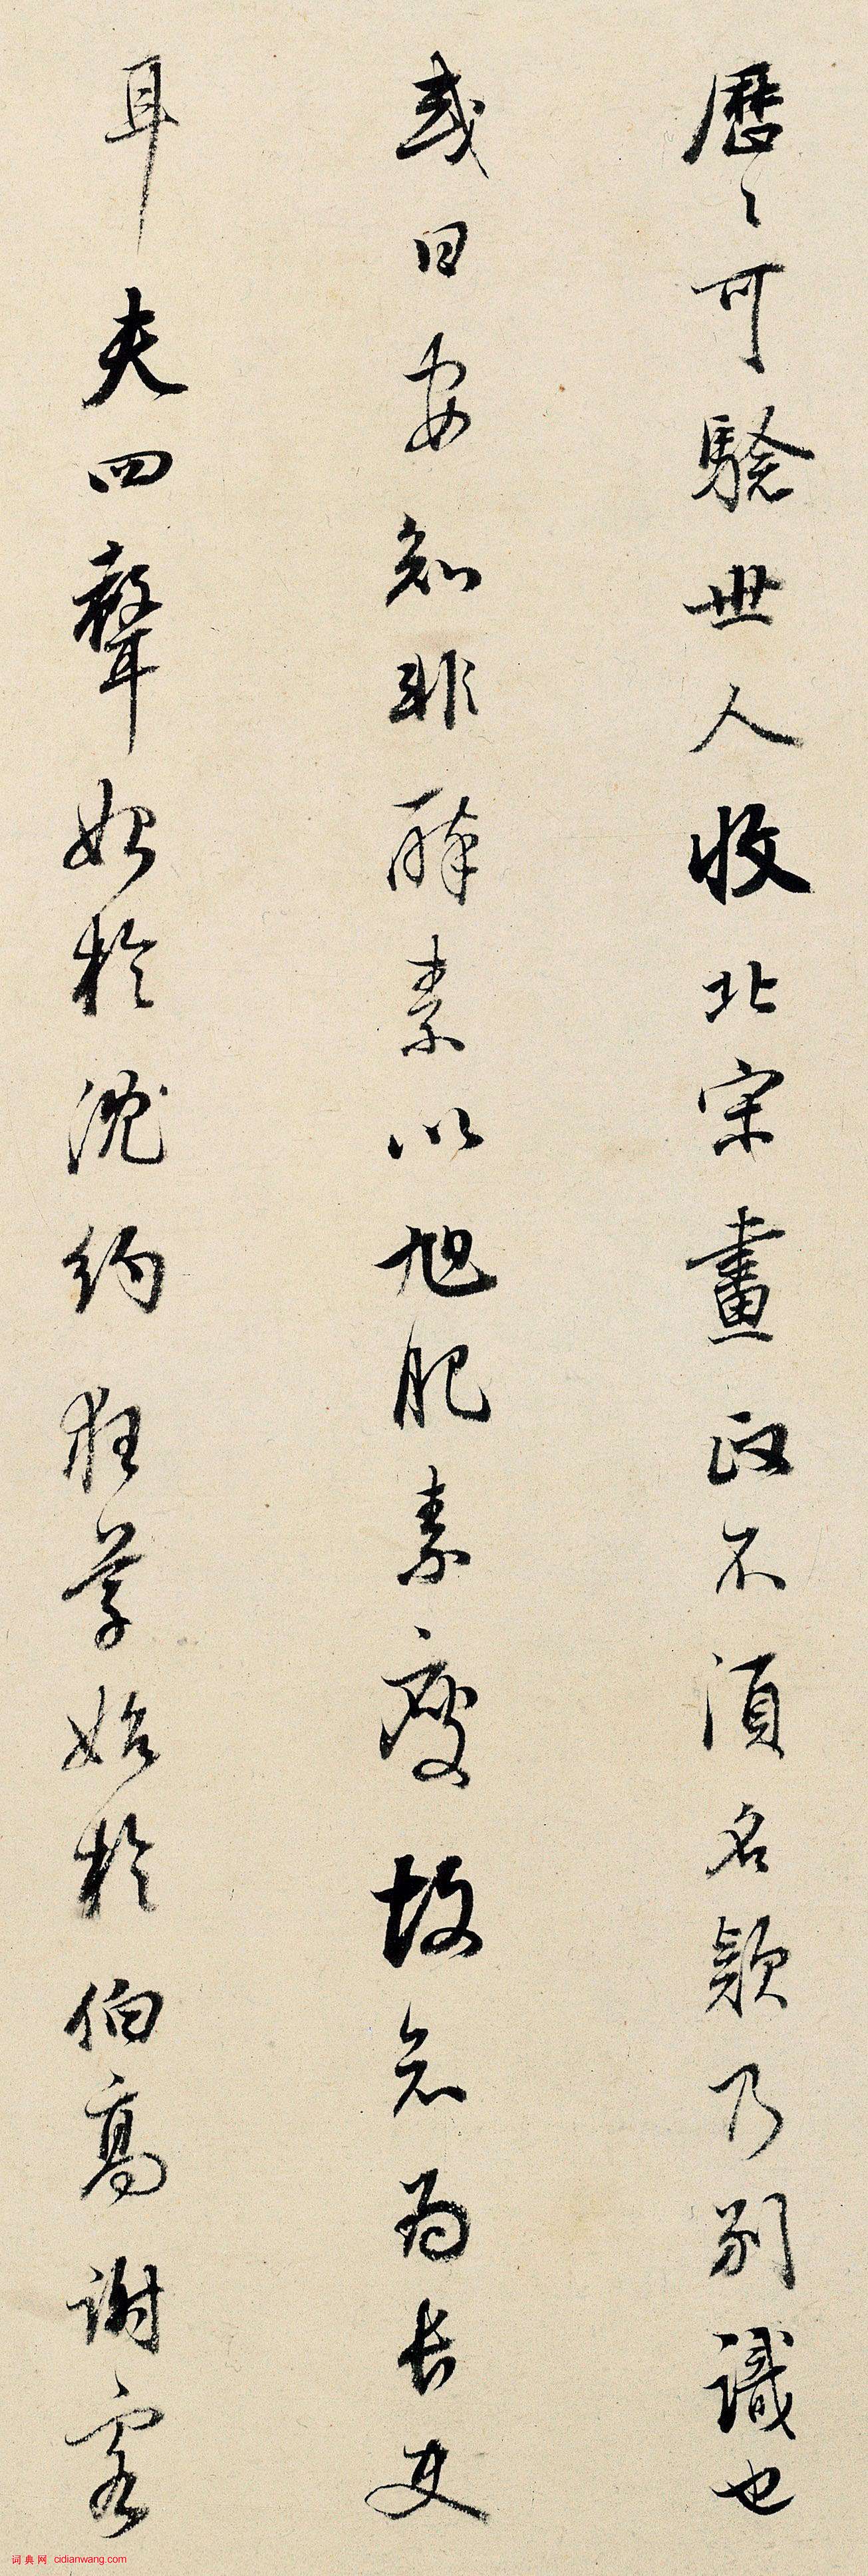 歷〻可驗世人收北宋畫政不須名款乃別識也
或曰安知非醉素以旭肥素瘦故知為長史
耳夫四聲始於沈約狂草始於伯高謝客
词典网 cidianwang.com